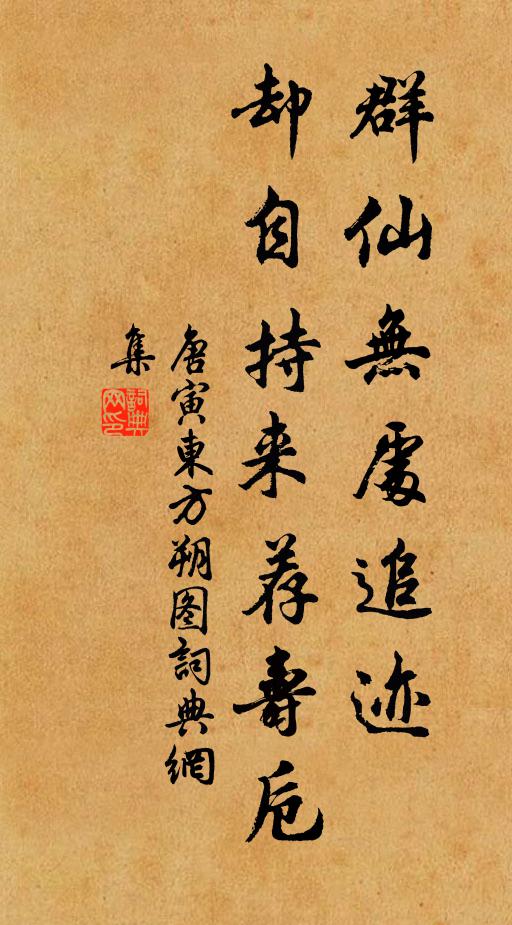 群仙無處追迹
却自持来荐壽卮
唐寅東方朔图詞典網
集
詞典
网印